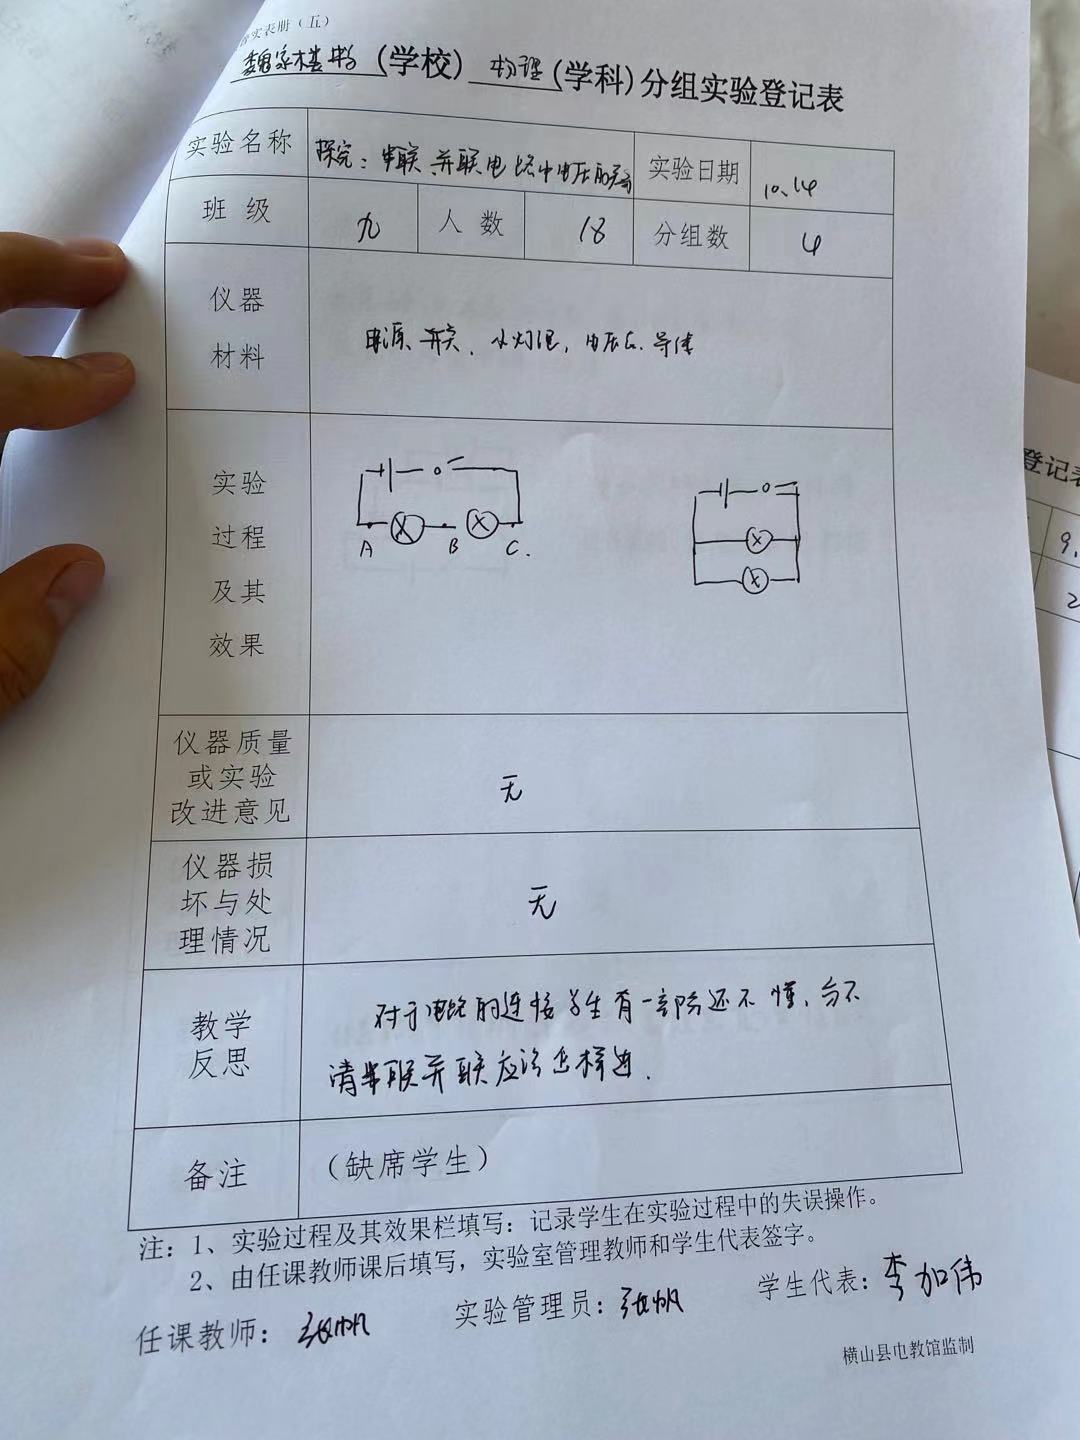 实表册（五）
魏家楼中 (学校) 物理 (学科) 分组实验登记表
实验名称 探究：串联并联电路中电压的 实验日期 10.14
班级 九 人数 18 分组数 4
仪器
材料
电源、开关、小灯泡，电压表、导线
实验
过程
及其
效果
A B C.
仪器质量
或实验
改进意见
无
仪器损
坏与处
理情况
无
教学
反思
对于电路的连接学生有一部份还不懂，分不
清串联并联应该怎样连.
备注 （缺席学生）
注：1、实验过程及其效果栏填写：记录学生在实验过程中的失误操作。
2、由任课教师课后填写，实验室管理教师和学生代表签字。
任课教师：张帆 实验管理员：张帆 学生代表：李加伟
横山县电教馆监制
登记表
9.
2